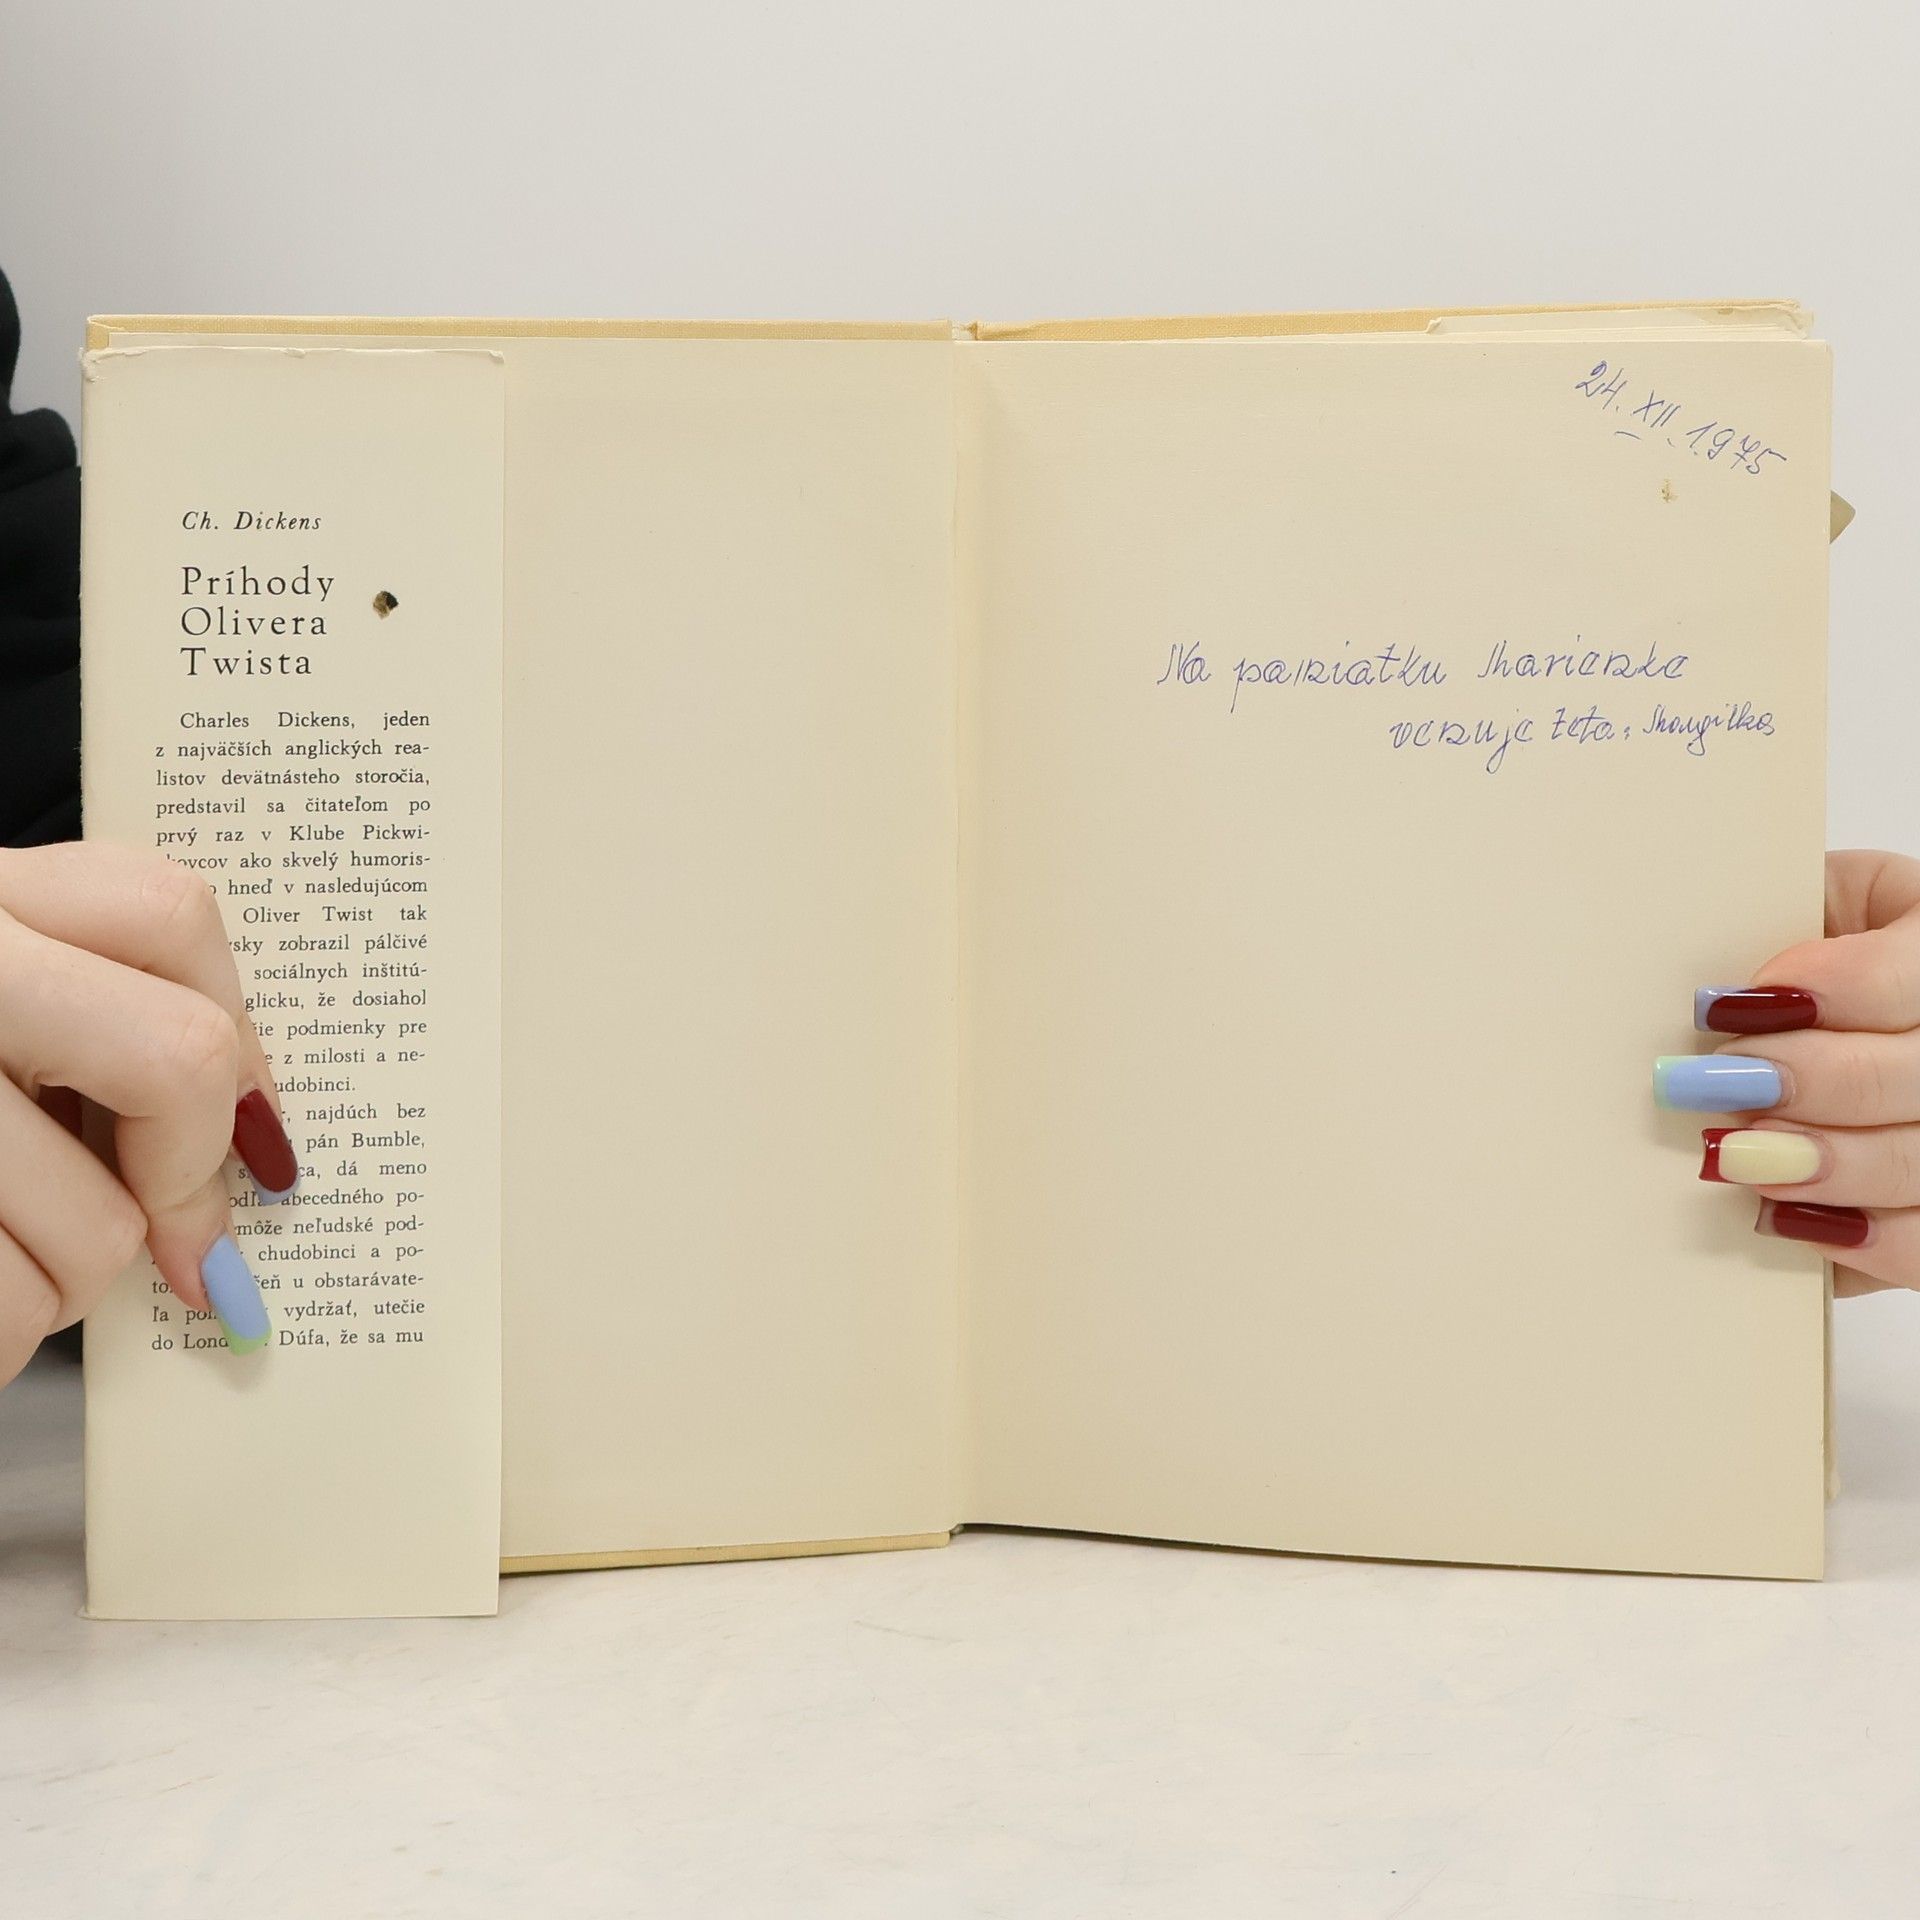 Ch. Dickens
Príhody
Olivera
Twista
Charles Dickens, jeden
z najväčších anglických rea-
listov devätnásteho storočia,
predstavil sa čitateľom po
prvý raz v Klube Pickwi-
ako skvelý humoris-
hneď v nasledujúcom
Oliver Twist tak
zobrazil páľčivé
sociálnych inštitú-
že dosiahol
podmienky pre
z milosti a ne-
najdúch bez
pán Bumble,
dá meno
abecedného po-
môže neľudské pod-
chudobinci a po-
u obstarávate-
ľa vydržať, utečie
do Dúfa, že sa mu
24. XII. 1975
Na pamiatku Marienke
venuje teta: